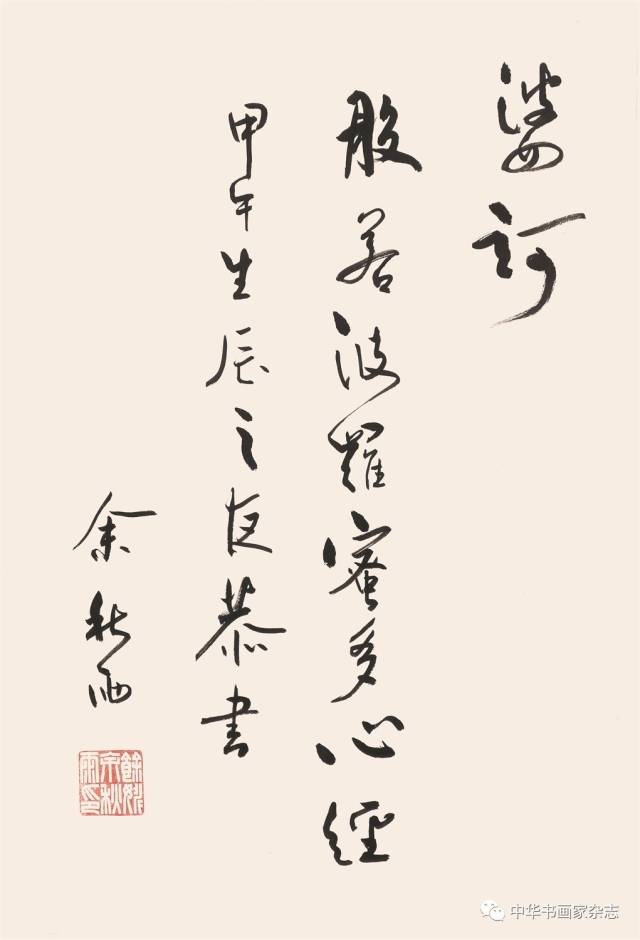 婆訶
般若波羅蜜多心經
甲午生辰之夜恭書
余秋雨
餘姚余秋雨印
中华书画家杂志